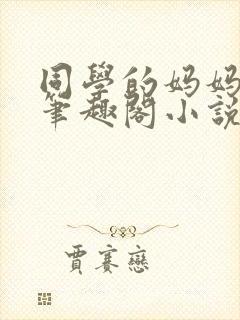 同學的妈妈
筆趣閣小說
賈賽戀